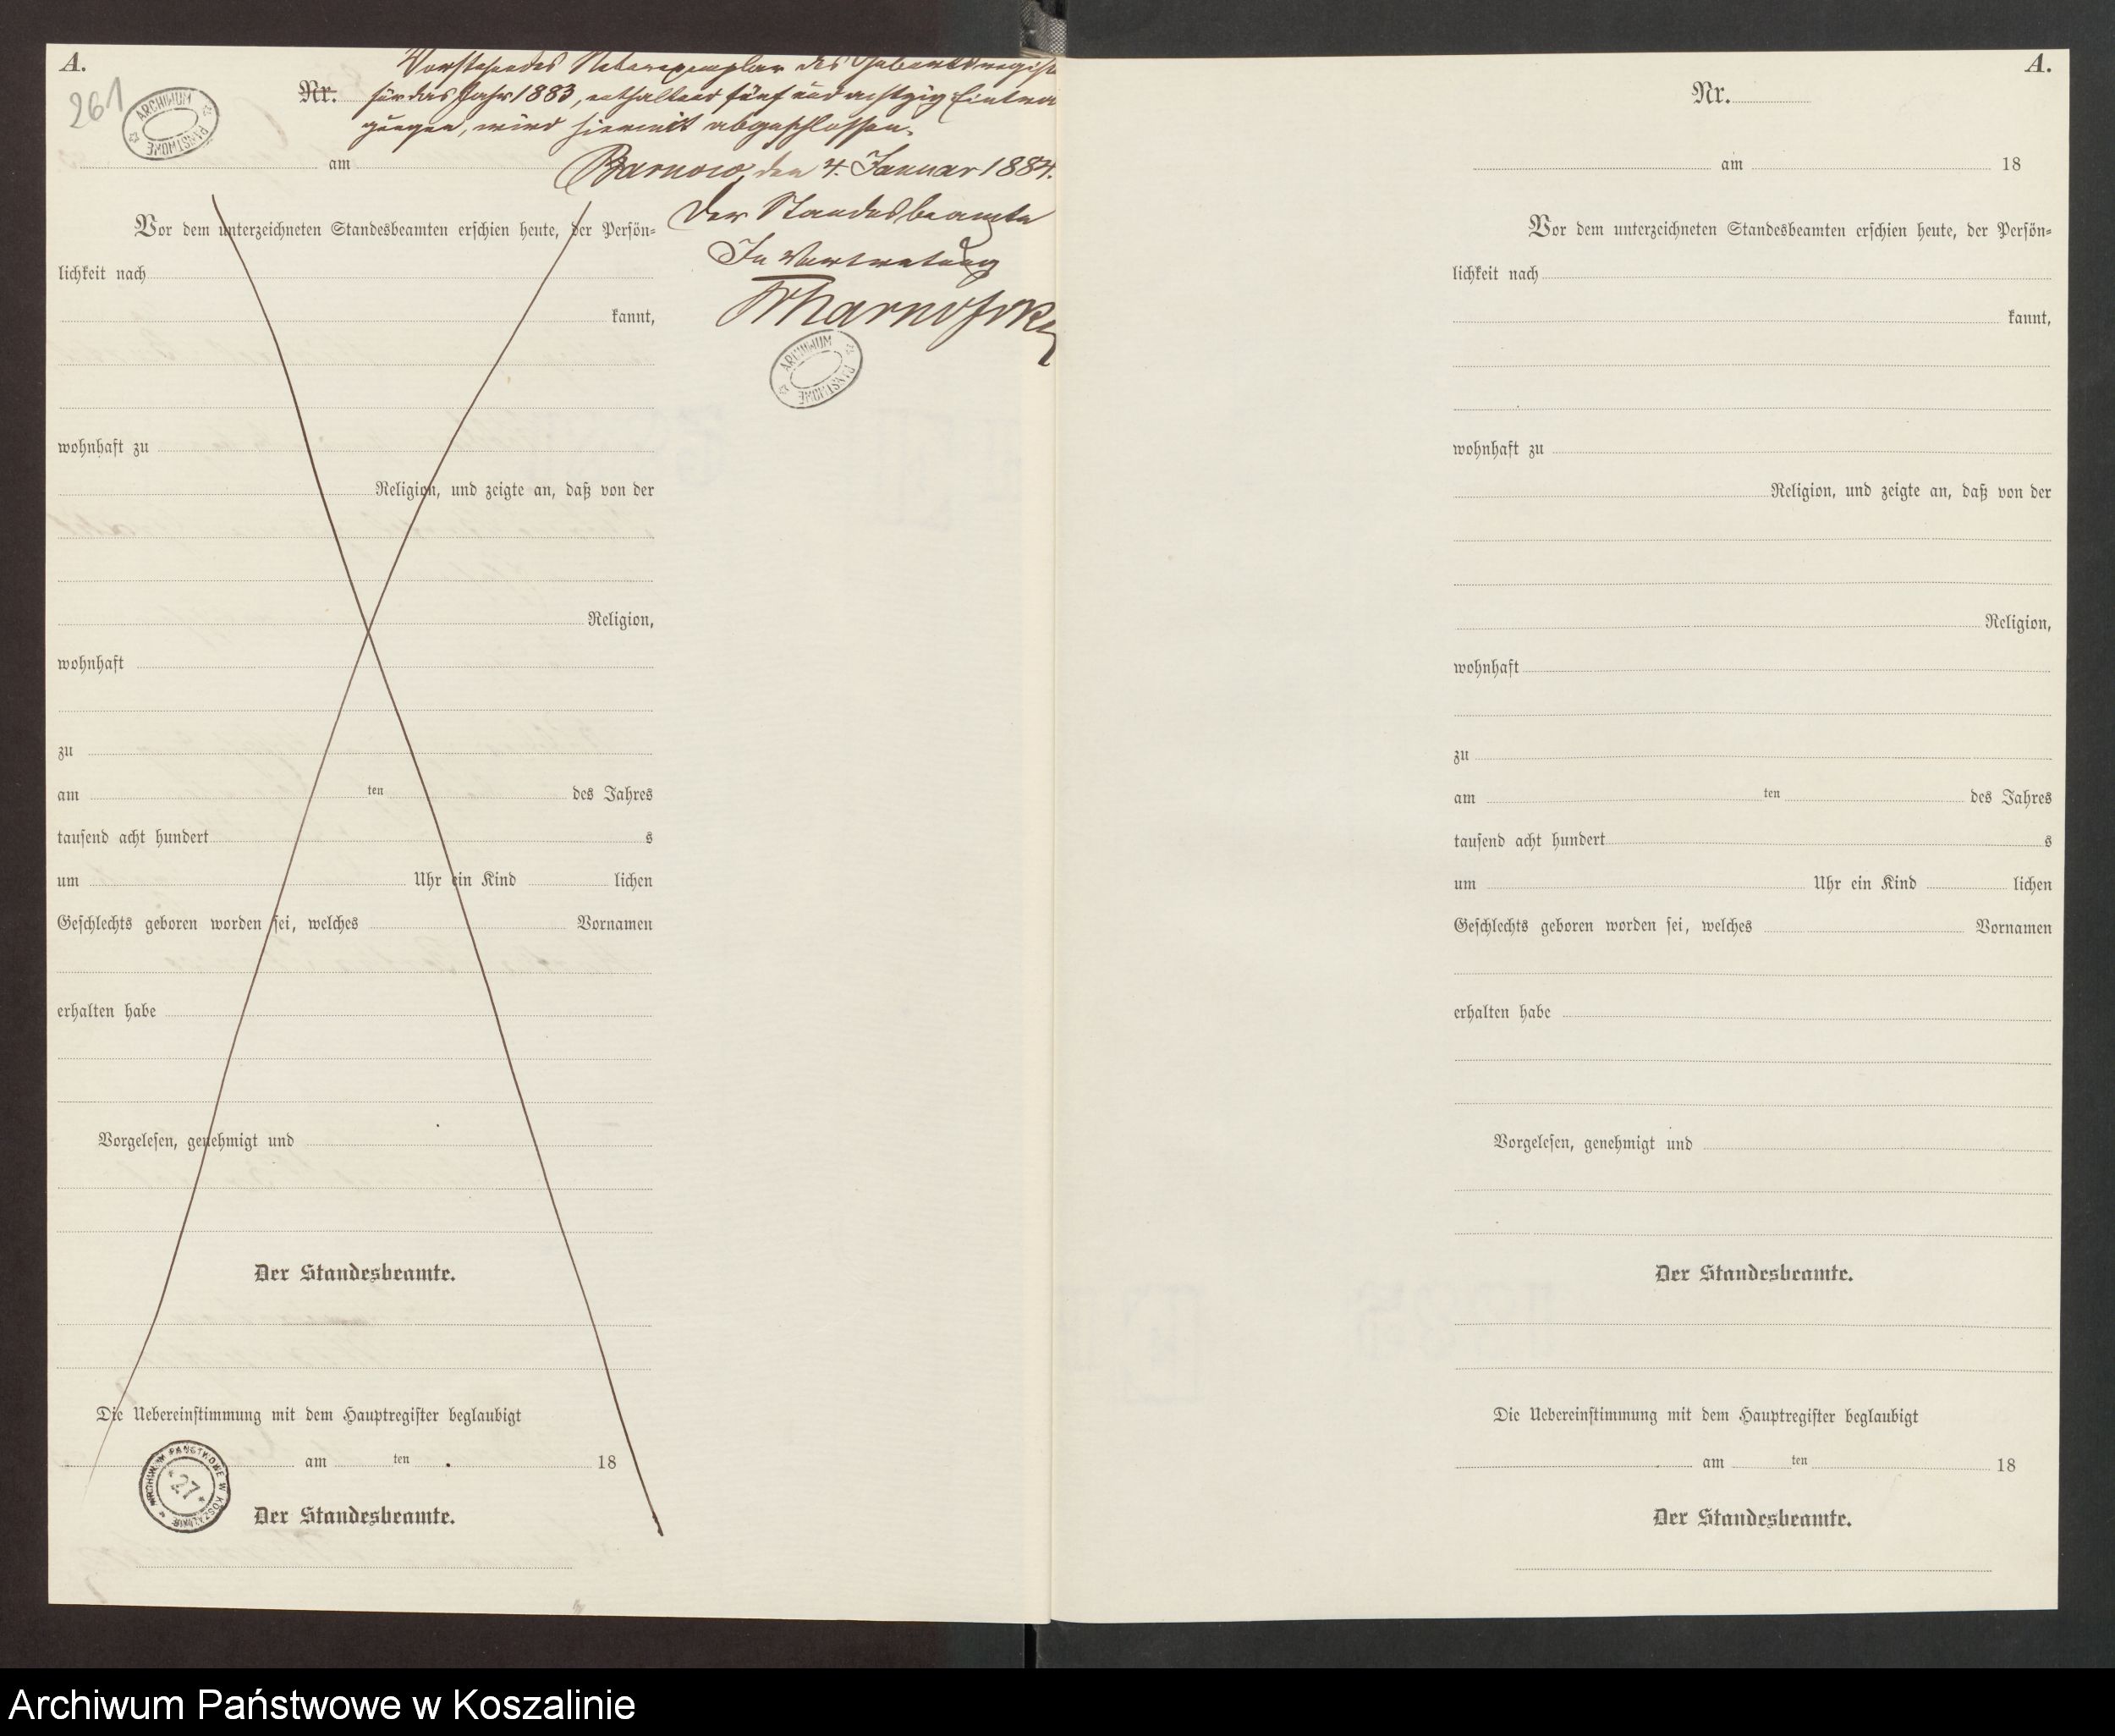 A.
261
ARCHIWUM PAŃSTWOWE
Vorstehendes Nebenexemplar des Geburtsregist
Nr. für das Jahr 1883, enthaltend fünf und achtzig Eintra
gungen, wird hiermit abgeschlossen.
am
Barnow, den 4. Januar 1884.
Der Standesbeamte
In Vertretung
ARCHIWUM PAŃSTWOWE
Vor dem unterzeichneten Standesbeamten erschien heute, der Persön=
lichkeit nach
kannt,
wohnhaft zu
Religion, und zeigte an, daß von der
Religion,
wohnhaft
zu
am ten des Jahres
tausend acht hundert s
um Uhr ein Kind lichen
Geschlechts geboren worden sei, welches Vornamen
erhalten habe
Vorgelesen, genehmigt und
Der Standesbeamte.
Die Uebereinstimmung mit dem Hauptregister beglaubigt
am ten 18
ARCHIWUM PAŃSTWOWE W KOSZALINIE
27
Der Standesbeamte.
A.
Nr.
am 18
Vor dem unterzeichneten Standesbeamten erschien heute, der Persön=
lichkeit nach
kannt,
wohnhaft zu
Religion, und zeigte an, daß von der
Religion,
wohnhaft
zu
am ten des Jahres
tausend acht hundert s
um Uhr ein Kind lichen
Geschlechts geboren worden sei, welches Vornamen
erhalten habe
Vorgelesen, genehmigt und
Der Standesbeamte.
Die Uebereinstimmung mit dem Hauptregister beglaubigt
am ten 18
Der Standesbeamte.
Archiwum Państwowe w Koszalinie